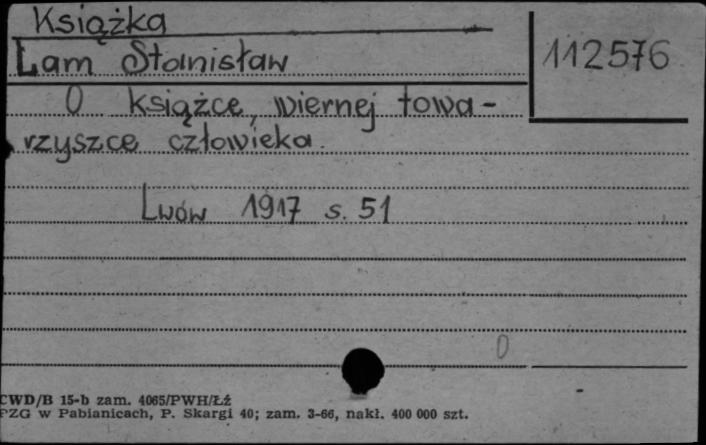 Książka
Lam Stanisław
112576
O książce, wiernej towa-
rzyszce człowieka.
Lwów 1917 s. 51
0
CWD/B 15-b zam. 4065/PWH/Łź
PZG w Pabianicach, P. Skargi 40; zam. 3-66, nakł. 400 000 szt.